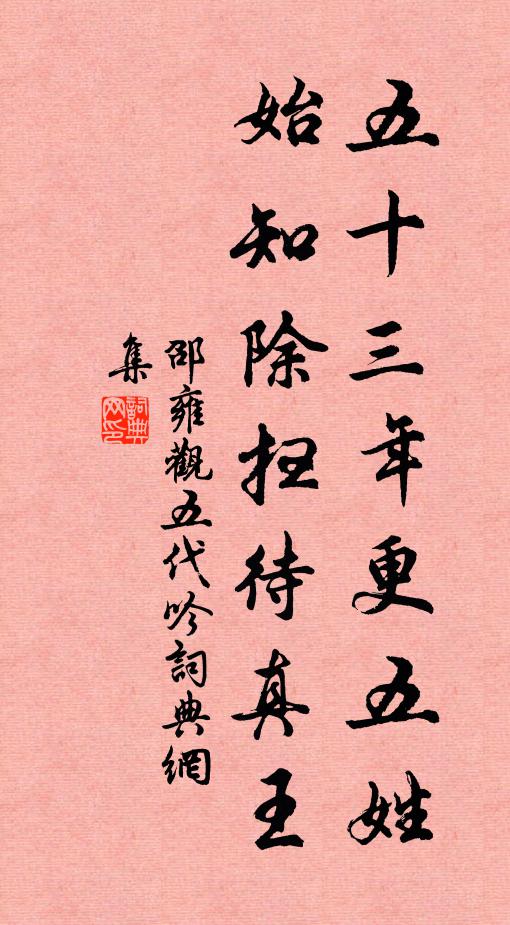 五十三年更五姓
始知除扫待真王
邵雍觀五代吟詞典網
集
詞典网印